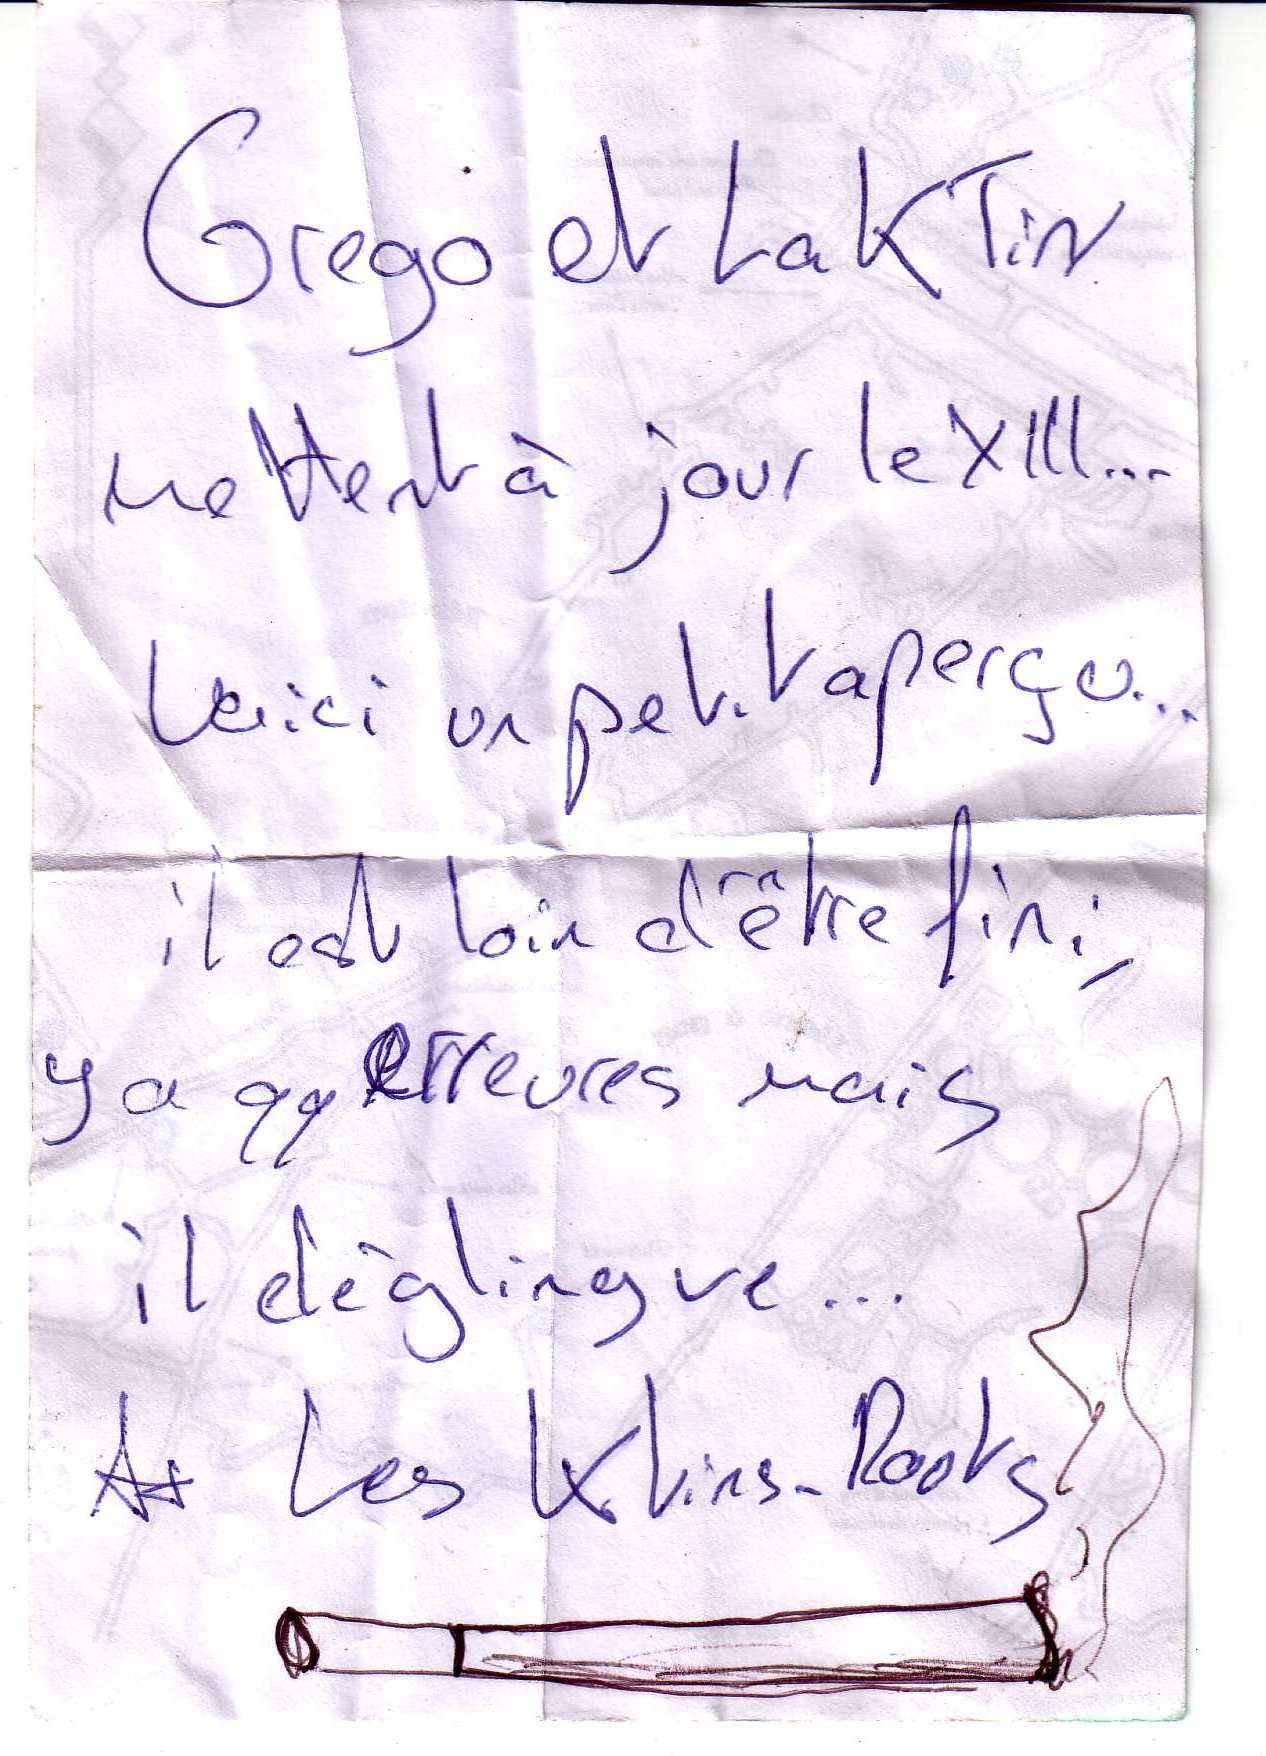 Grego et LaKTin
mettent à jour le XIII...
Voici un petit aperçu...
il est loin d'être fini,
y a qq erreures mais
il déglingue...
Les Ktins-Roots